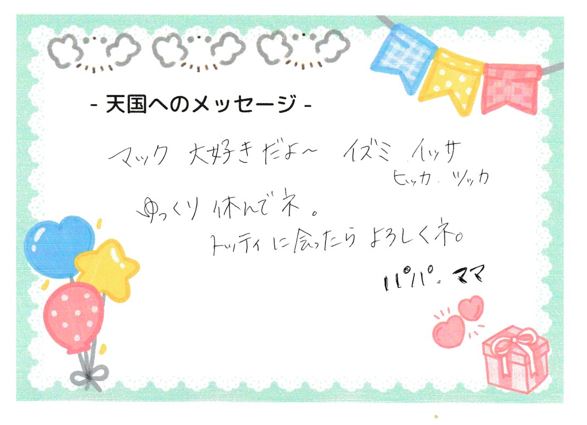 - 天国へのメッセージ -
マック 大好きだよ～ イズミ イッサ
ヒッカ ツッカ
ゆっくり 休んでネ。
トッティに会ったら よろしくネ。
パパ、ママ